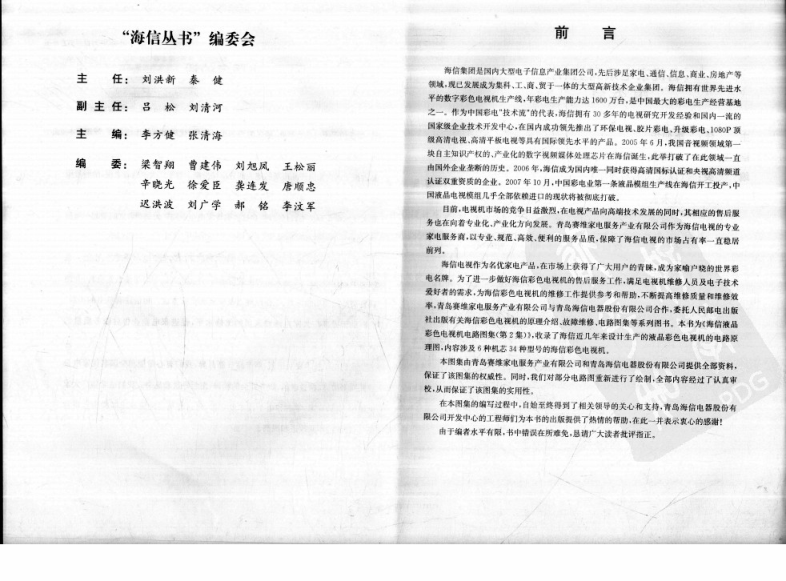 “海信丛书”编委会
主 任：刘洪新 秦 健
副 主 任：吕 松 刘清河
主 编：李方健 张清海
编 委：梁智翔 曹建伟 刘旭凤 王松丽
辛晓光 徐爱臣 龚连发 唐顺忠
迟洪波 刘广学 郝 铭 李汶军
前 言
海信集团是国内大型电子信息产业集团公司，先后涉足家电、通信、信息、商业、房地产等
领域，现已发展成为集科、工、商、贸于一体的大型高新技术企业集团。海信拥有世界先进水
平的数字彩色电视机生产线，年彩电生产能力达 1600 万台，是中国最大的彩电生产经营基地
之一。作为中国彩电"技术流"的代表，海信拥有 30 多年的电视研究开发经验和国内一流的
国家级企业技术开发中心，在国内成功领先推出了环保电视、胶片彩电、升级彩电、1080P 顶
级高清电视、高清平板电视等具有国际领先水平的产品。2005 年 6 月，我国音视频领域第一
块自主知识产权的、产业化的数字视频媒体处理芯片在海信诞生，此举打破了在此领域一直
由国外企业垄断的历史。2006 年，海信成为国内唯一同时获得高清国标认证和央视高清频道
认证双重资质的企业。2007 年 10 月，中国彩电业第一条液晶模组生产线在海信开工投产，中
国液晶电视模组几乎全部依赖进口的现状将被彻底打破。
目前，电视机市场的竞争日益激烈，在电视产品向高端技术发展的同时，其相应的售后服
务也在向着专业化、产业化方向发展。青岛赛维家电服务产业有限公司作为海信电视的专业
家电服务商，以专业、规范、高效、便利的服务品质，保障了海信电视的市场占有率一直稳居
前列。
海信电视作为名优家电产品，在市场上获得了广大用户的青睐，成为家喻户晓的世界彩
电名牌。为了进一步做好海信彩色电视机的售后服务工作，满足电视机维修人员及电子技术
爱好者的需求，为海信彩色电视机的维修工作提供参考和帮助，不断提高维修质量和维修效
率，青岛赛维家电服务产业有限公司与青岛海信电器股份有限公司合作，委托人民邮电出版
社出版有关海信彩色电视机的原理介绍、故障维修、电路图集等系列图书。本书为《海信液晶
彩色电视机电路图集（第 2 集）》，收录了海信近几年来设计生产的液晶彩色电视机的电路原
理图，内容涉及 6 种机芯 34 种型号的海信彩色电视机。
本图集由青岛赛维家电服务产业有限公司和青岛海信电器股份有限公司提供全部资料，
保证了该图集的权威性。同时，我们对部分电路图重新进行了绘制，全部内容经过了认真审
校，从而保证了该图集的实用性。
在本图集的编写过程中，自始至终得到了相关领导的关心和支持，青岛海信电器股份有
限公司开发中心的工程师们为本书的出版提供了热情的帮助，在此一并表示衷心的感谢！
由于编者水平有限，书中错误在所难免，恳请广大读者批评指正。
PDG